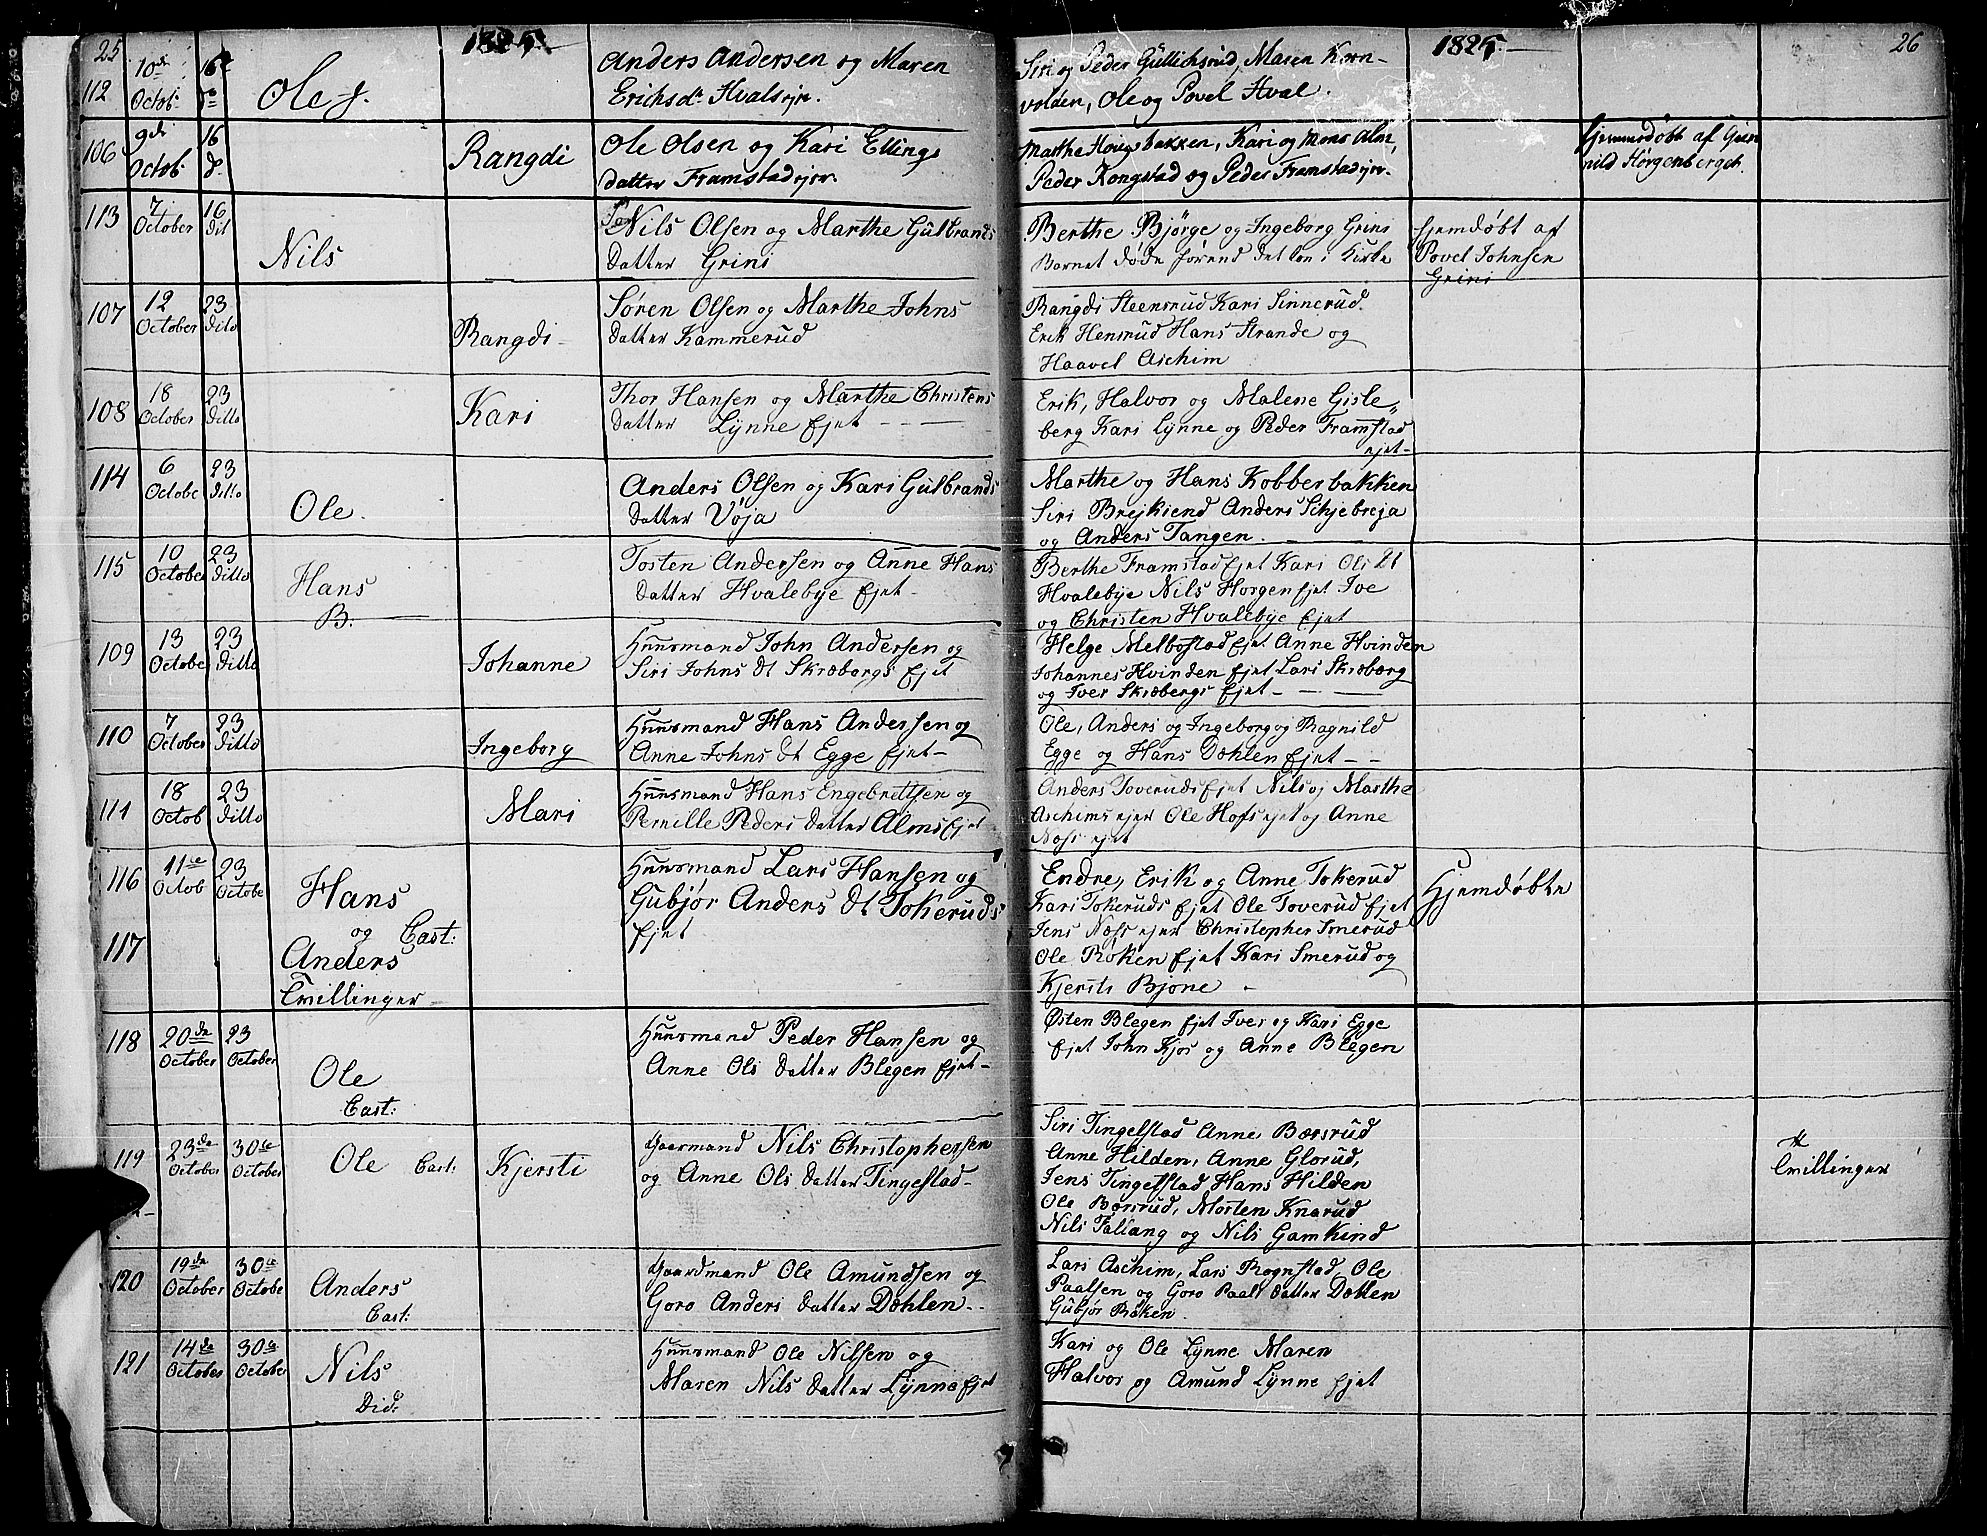 25 1825.
112 10de Octob: 16de Ole J. Anders Andersen og Maren
Erichsdr Hvalsejr.
106 9de Octob: 16 d. Rangdi Ole Olsen og Kari Ellings
datter Framstadejer.
113 7 October 16 dit Nils Nils Olsen og Marthe Gulbrands
datter Grini
107 12 October 23 dito Rangdi- Søren Olsen og Marthe Johns
datter Kammerud
108 18 October 23 ditto Kari Thor Hansen og Marthe Christens
datter Lynne Ejet - - -
114 6 Octobe 23 ditto Ole. Anders Olsen og Kari Gulbrands
datter Vöja
115 10 October 23 ditto Hans B. Tosten Andersen og Anne Hans
datter Hvalebye Ejet-
109 13 Octobe 23 ditto Johanne Huusmand John Andersen og
Siri Johns dt Skröbergs Ejet
110 7 October 23 ditto Ingeborg Huusmand Hans Andersen og
Anne Johns dt Egge Ejet-
111 18 Octob 23 ditto Mari Huusmand Hans Engebrettsen og
Pernille Peders datter Alms Ejet
116 11te Octob 23 Octobe Hans Huusmand Lars Hansen og
Gubjör Anders dt Tokeruds
Ejet
117 og Cast:
Anders
Tvillinger-
118 20de October 23 October Ole Cast: Huusmand Peder Hansen og
Anne Ols datter Blegen Ejet-
119 23de October 30te October Ole Cast: Kjersti Gaarmand Nils Christophersen
og Anne Ols datter Tingelstad-
120 19de October 30te October Anders Cast: Gaardmand Ole Amundsen og
Goro Anders datter Dæhlen - -
121 14de October 30te October Nils Did: Huusmand Ole Nilsen og
Maren Nils datter Lynne Ejet
1825. 26
Siri og Peder Gullichsrud, Maren Korn-
volden, Ole og Povel Hval.
Marthe Hougsbakken, Kari og Mons Alm,
Peder Kongstad og Peder Framstadejer.
Hjemmedöbt af Gun
nild Horgenberget.
Berthe Bjørge og Ingeborg Grini
Barnet døde førend det kom i Kirke
hjemdøbt af
Povel Johnsen
Grini
Rangdi Steensrud Kari Sinnerud.
Erik Hensrud Hans Strande og
Haavel Aschim
Erik, Halvor og Malene Gisle„
berg Kari Lynne og Peder Framstad
ejet-
Marthe og Hans Kobberbakken
Siri Brejkiend Anders Schjebreja
og Anders Tangen.
Berthe Framstad Ejet Kari Ols dt
Hvalebye Nils Horgen Ejet Ive
og Christen Hvalebye Ejet
Helge Melbostad Ejet Anne Hvinden
Johannes Hvinden Ejet Lars Skröberg
og Iver Skröbergs Ejet-
Ole, Anders og Ingeborg og Ragnild
Egge og Hans Dæhlen Ejet- -
Anders Toveruds Ejet Nils og Marthe
Aschims ejer Ole Hofs ejet og Anne
Næss ejet
Endre, Erik og Anne Tokerud
Kari Tokeruds Ejet Ole Toverud Ejet
Jens Næss ejer Christopher Smerud
Ole Røken Ejet Kari Smerud og
Kjersti Bjone -
Hjemdøbte
Østen Blegen Ejet Iver og Kari Egge
Ejet John Kjos og Anne Blegen
Siri Tingelstad Anne Bærsrud
Anne Hilden, Anne Glorud,
Jens Tingelstad Hans Hilden
Ole Børsrud, Morten Knarud
Nils Fallang og Nils Gamkind
Tvillinger
Lars Aschim, Lars Rognstad, Ole
Paalsen og Goro Paals datter Dæhlen
Gubjör Røken.
Kari og Ole Lynne Maren
Halvor og Amund Lynne Ejet